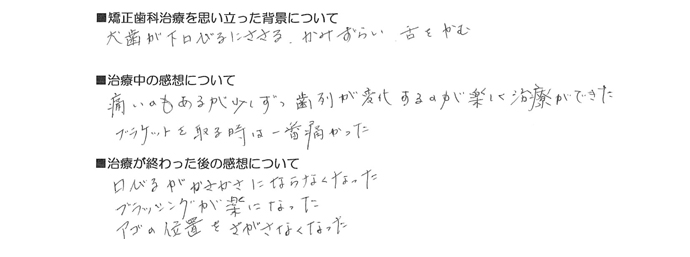 ■矯正歯科治療を思い立った背景について
犬歯が下口びるにささる、かみずらい、舌をかむ
■治療中の感想について
痛いのもあるが少しずつ歯列が変化するのが楽しく治療ができた
ブラケットを取る時は一番痛かった
■治療が終わった後の感想について
口びるがかさかさにならなくなった
ブラッシングが楽になった
アゴの位置をさがさなくなった